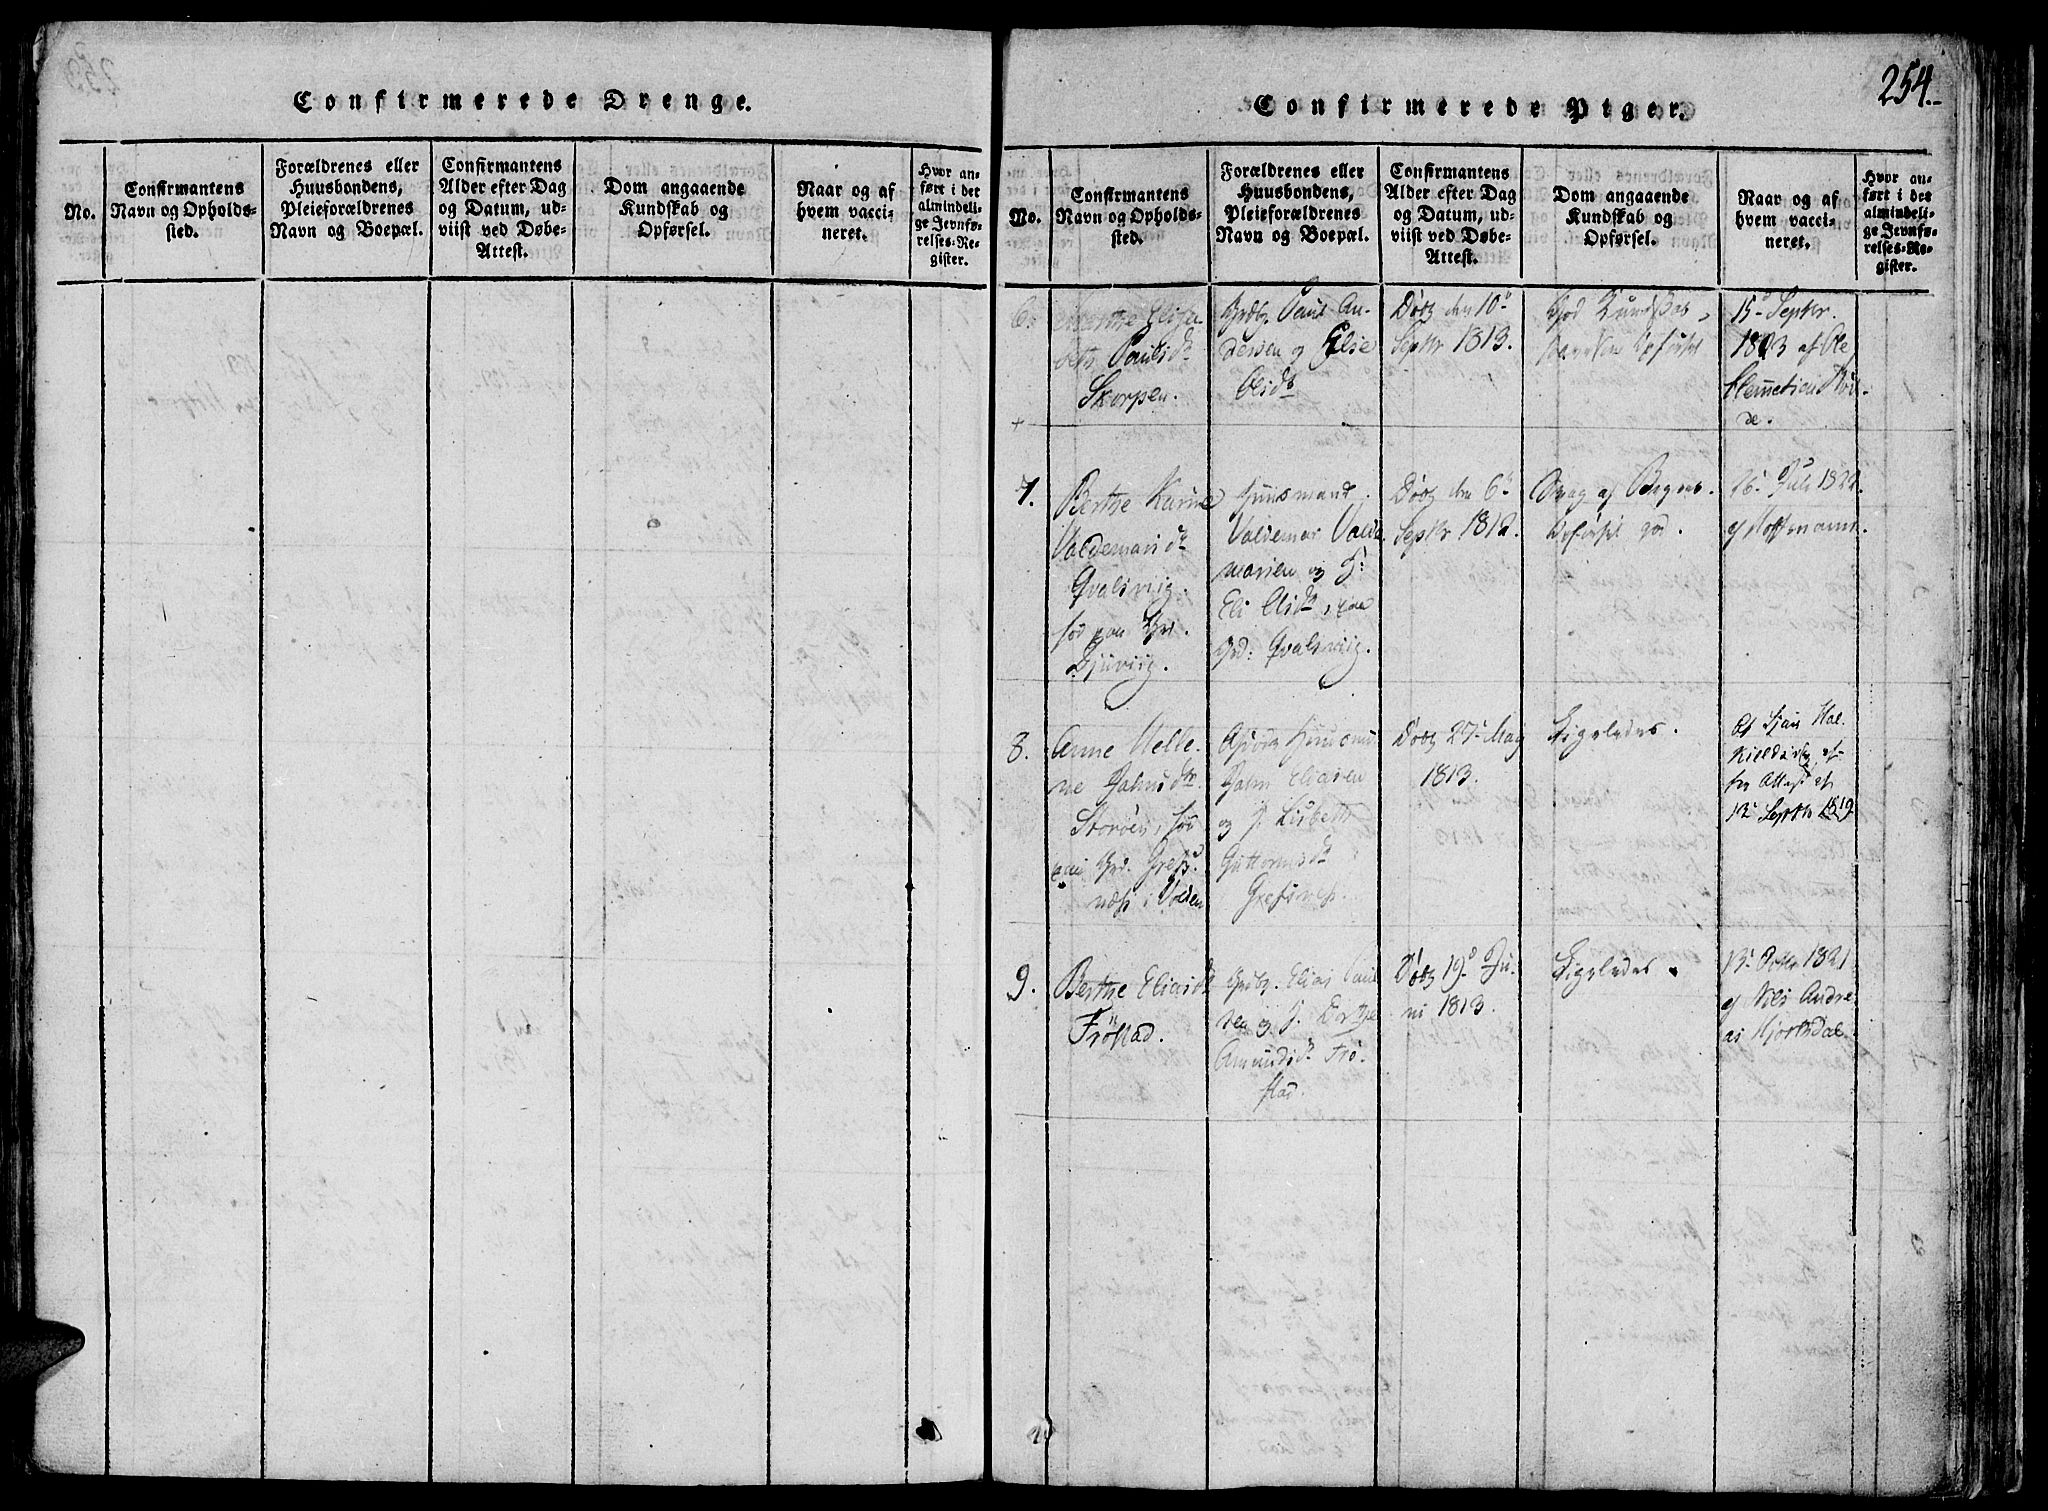 Confirmerede Drenge.
No.
Confirmantens
Navn og Opholds-
sted.
Forældrenes eller
Huusbondens,
Pleieforældrenes
Navn og Boepæl.
Confirmantens
Alder efter Dag
og Datum, ud-
viist ved Døbe-
Attest.
Dom angaaende
Kundskab og
Opførsel.
Naar og af
hvem vacci-
neret.
Hvor an-
ført i det
almindeli-
ge Jevnfø-
relses-Re-
gister.
254.
Confirmerede Piger.
No.
Confirmantens
Navn og Opholds-
sted.
Forældrenes eller
Huusbondens,
Pleieforældrenes
Navn og Boepæl.
Confirmantens
Alder efter Dag
og Datum, ud-
viist ved Døbe-
Attest.
Dom angaaende
Kundskab og
Opførsel.
Naar og af
hvem vacci-
neret.
Hvor an-
ført i det
almindeli-
ge Jevnfø-
relses-Re-
gister.
6.
Marthe Elisa-
beth Paulsd.
Skorpen.
Grdbr. Paul An-
dersen og Elie
Olsd.
Døbt den 10de
Septbr 1813.
God Kundskab,
Opførsel
15de Septbr.
1823 af Ole
7.
Berthe Karine
Valdemarsd.
Qvalsvig.
Huusmand
Valdemar Valde
marsen og H:
Eli Olsd.
Grd: Qvalsviig.
Døbt den 6te
Septbr 1812.
Svag af Begreb.
Opførsel god.
16. Juli 1822.
af Hoffmann
8.
Anne Helle-
ne Johnsd.
Storøen, fød
paa Grd. Grefs-
næss i Volden
John Eliasen
og H. Lisbeth
Guttormsd.
Grefsnæss.
Døbt 27. May
1813.
Ligeledes.
13. Septbr 1819
9.
Berthe Eliasd.
Frøstad.
Grdbr. Elias Paul
sen og H. Dorthe
Amundsd. Frø-
stad.
Døbt 19de Ju-
ni 1813.
Ligeledes.
13. Octbr 1821
af Nils Andre
as Hjorthdal